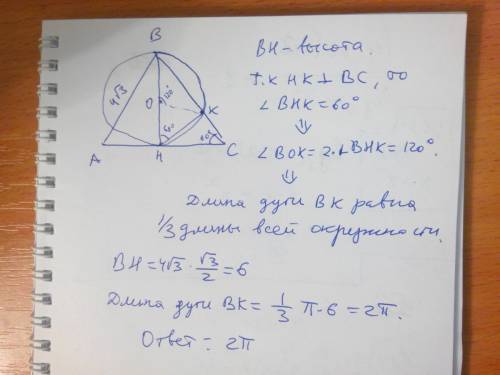 B
4√3
O
120°
K
60
60°
A
H
C
BH - высота.
т.к HK ⊥ BC, то
∠BHK = 60°
⇓
∠BOK = 2·∠BHK = 120°.
⇓
Длина дуги BK равна
1/3 длины всей окружности.
BH = 4√3 · √3/2 = 6
Длина дуги BK = 1/3 π·6 = 2π.
Ответ: 2π